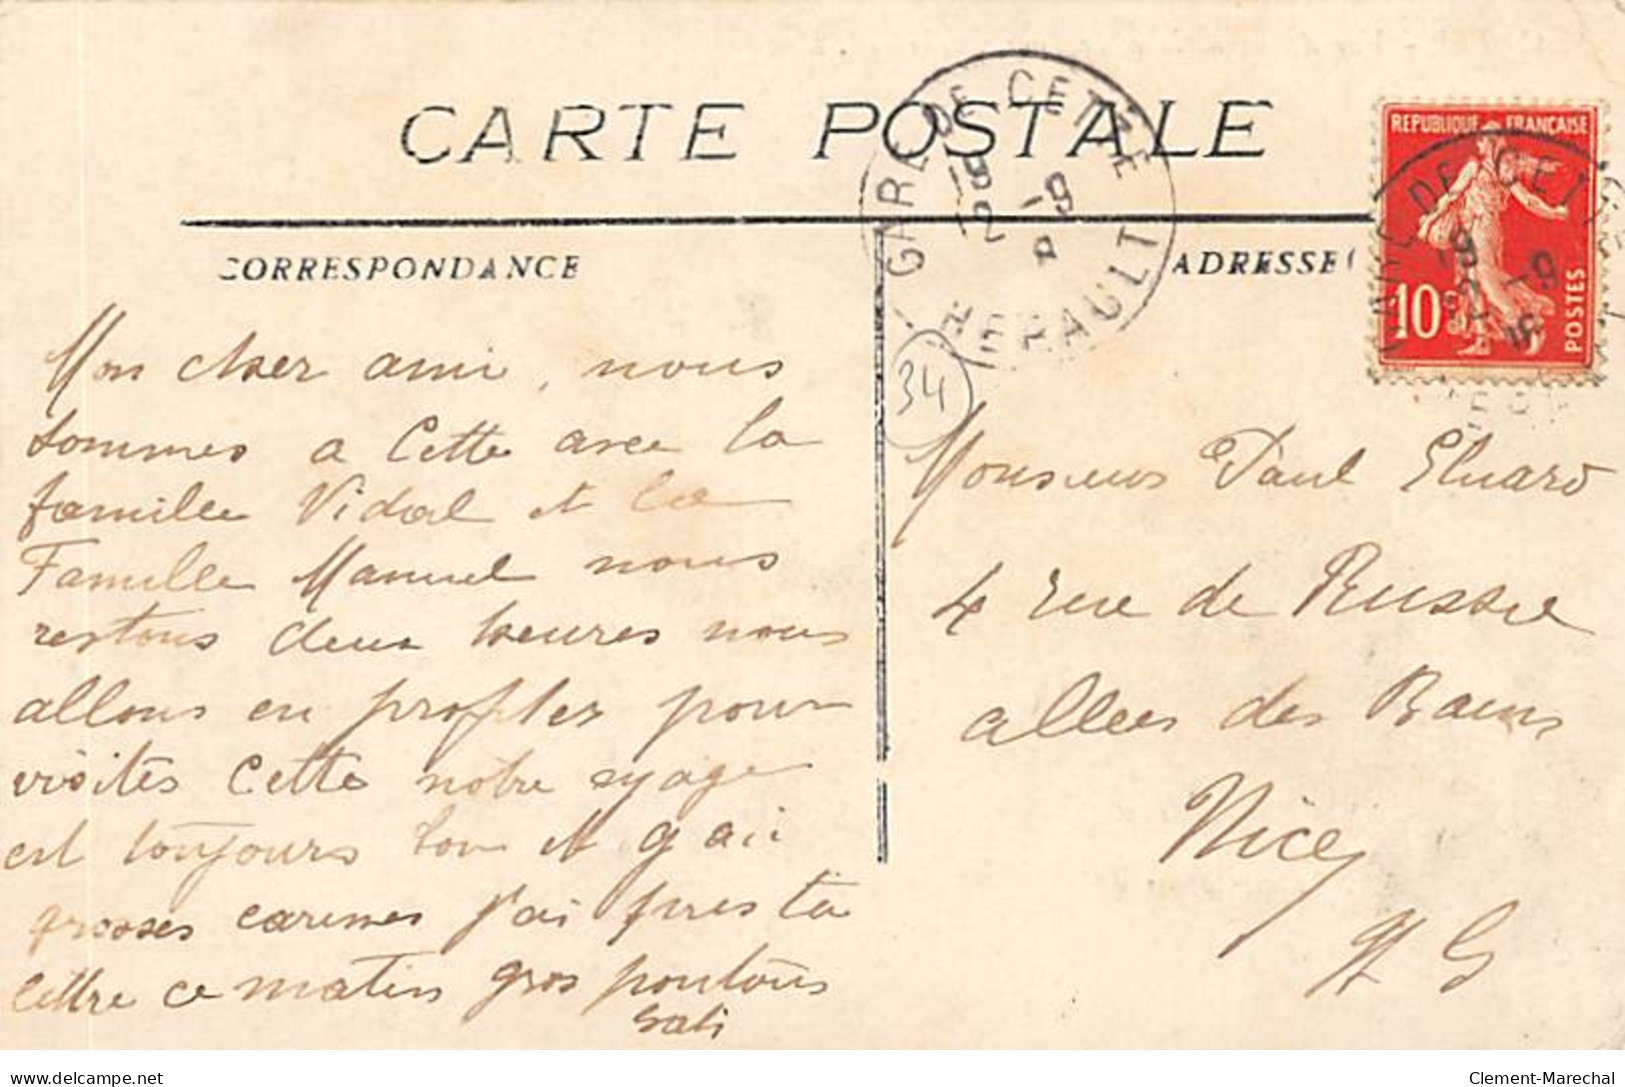 CARTE POSTALE
CORRESPONDANCE
ADRESSE
GARE DE CETTE
19 -9
12
HERAULT
REPUBLIQUE FRANÇAISE
10c
POSTES
GARE DE CETTE
19 -9
12
34
Mon cher ami, nous
sommes a Cette avec la
famille Vidal et la
Famille Manuel nous
restons deux heures nous
allons en profiter pour
visites Cette notre
est toujours bon et gai
grosses caresses j'ai pris ta
lettre ce matin gros poutous
Monsieur Paul Eluard
4 rue de Russie
allees des Bains
Nice
delcampe.net
Clement-Marechal